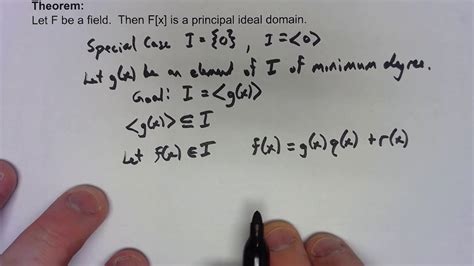 Theorem:
Let F be a field. Then F[x] is a principal ideal domain.
Special Case I = {0}, I = <0>
Let g(x) be an element of I of minimum degree.
Goal: I = <g(x)>
<g(x)> ⊆ I
Let f(x) ∈ I f(x) = g(x) q(x) + r(x)